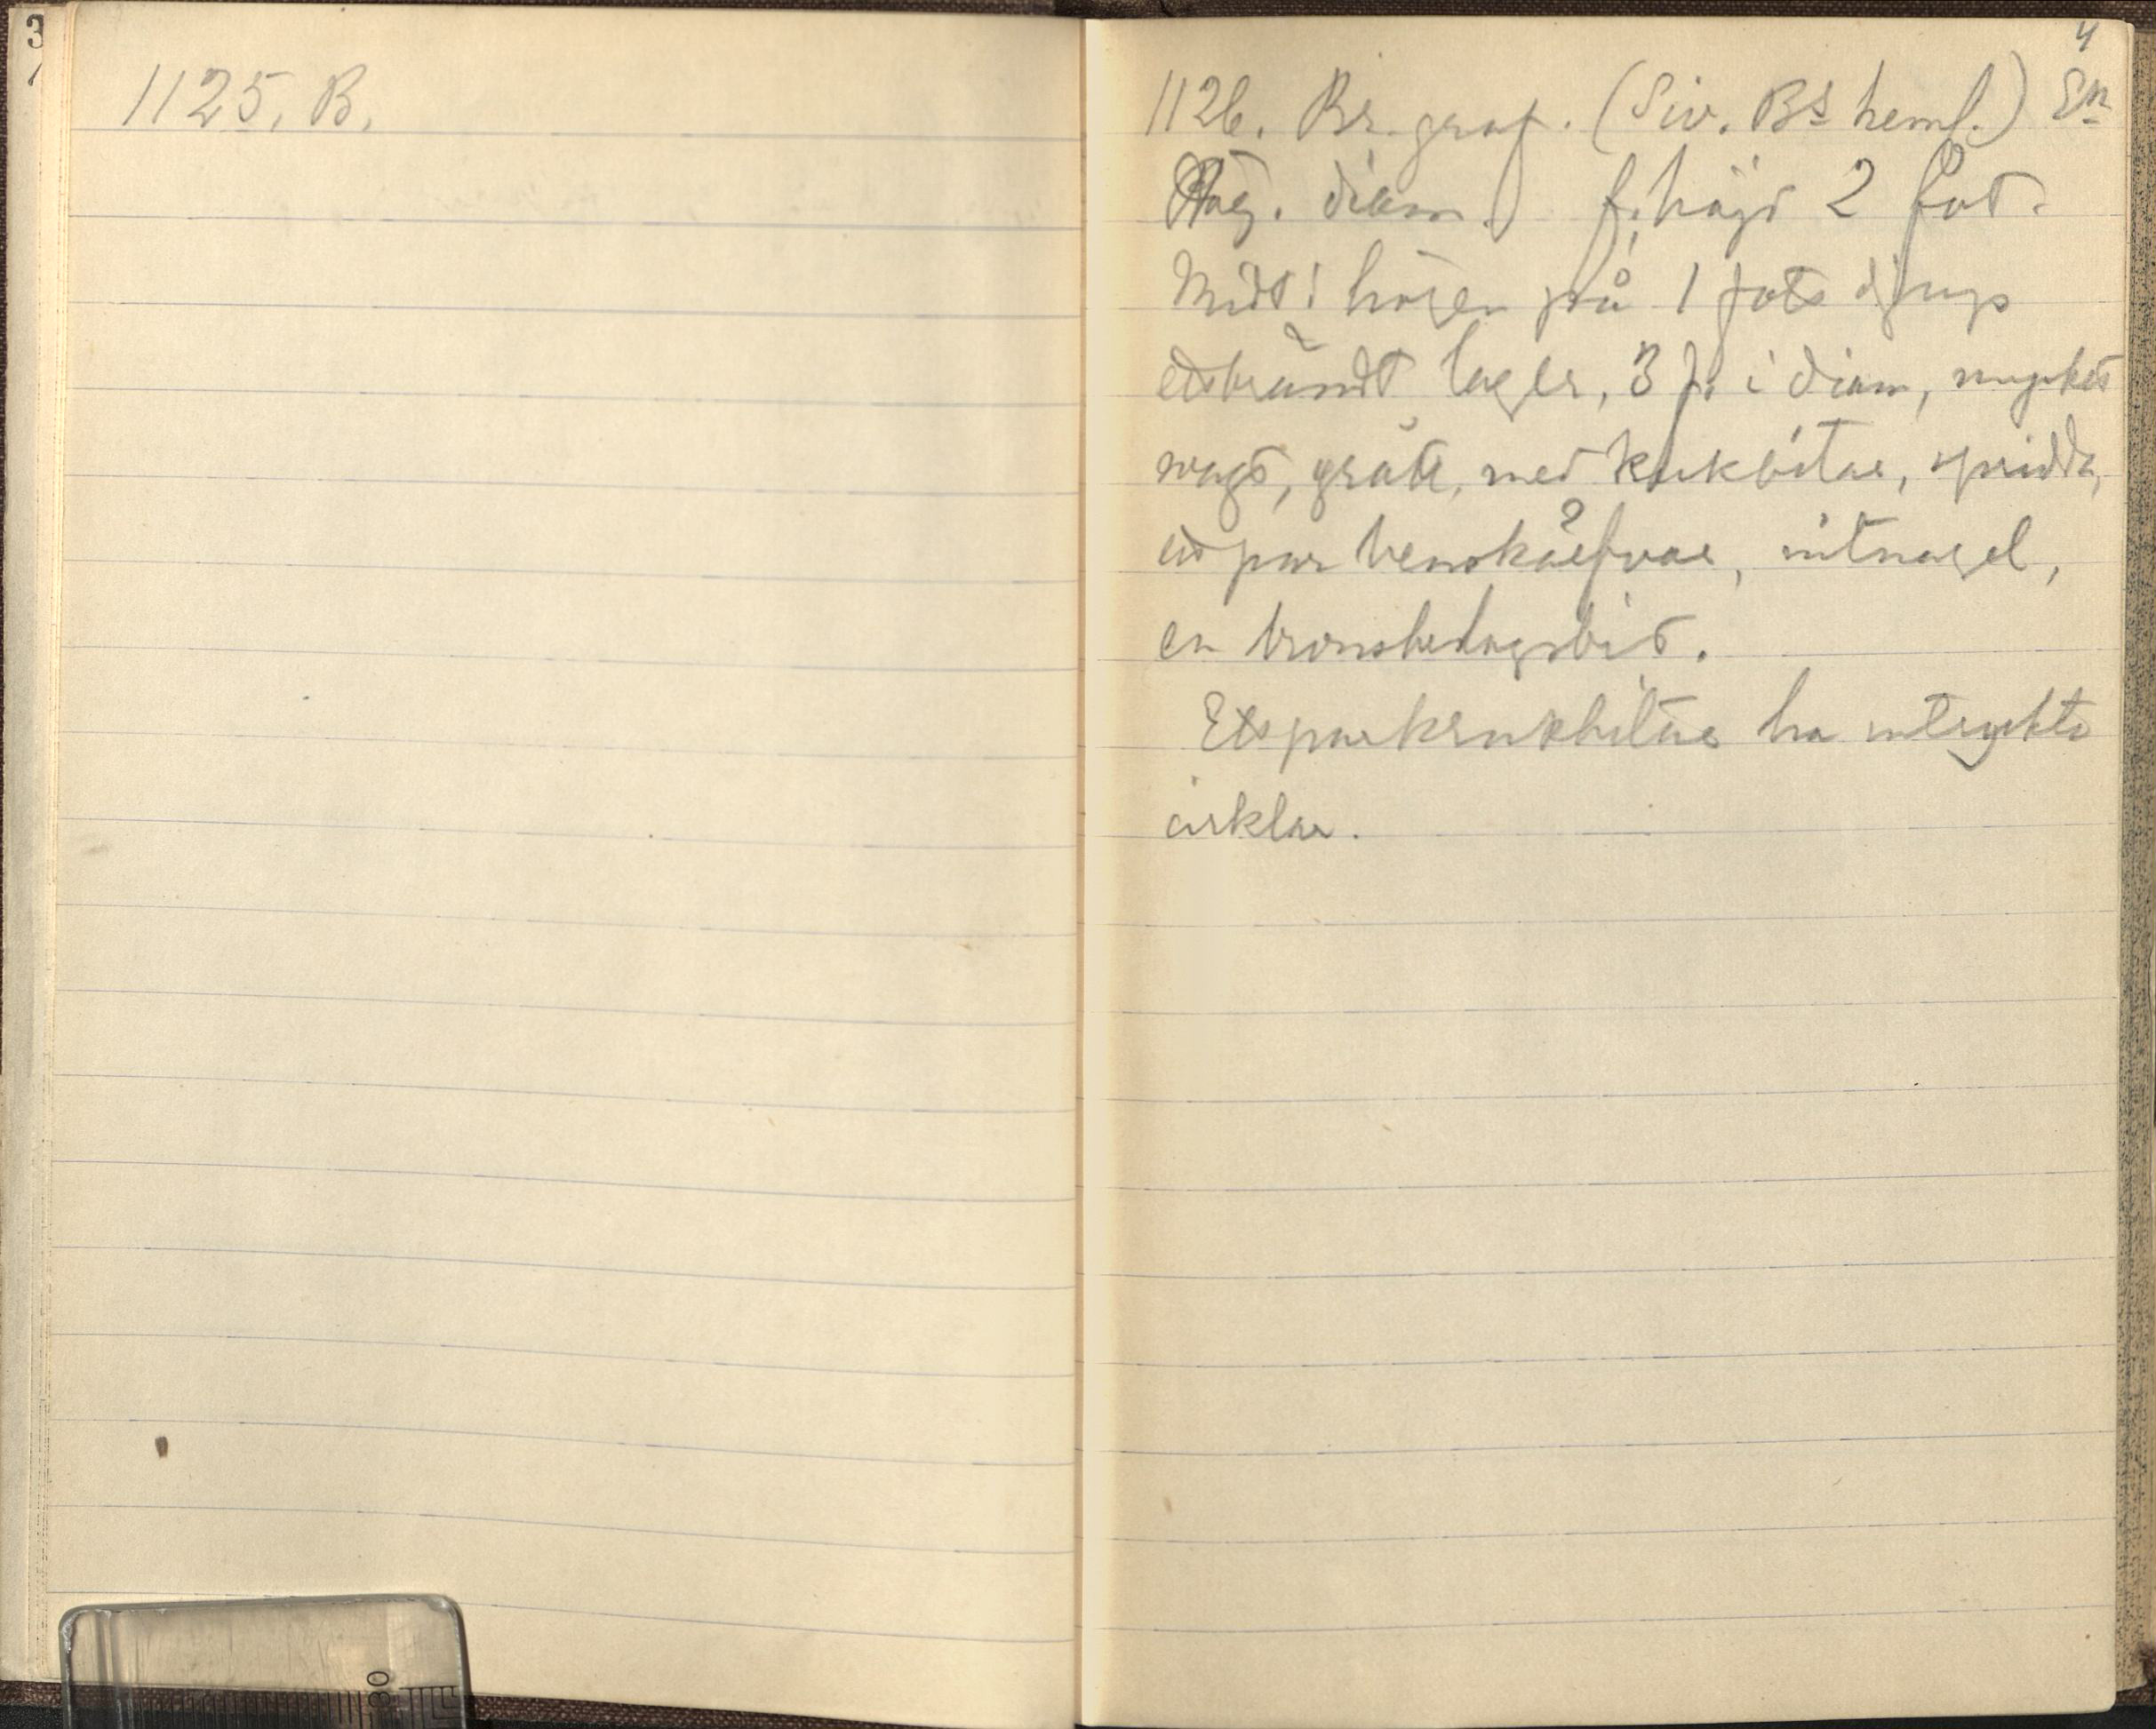 3
1125. B.
4
1126. Br. graf. (Siv. Bs heml.) En
Hög. diam. f. höjd 2 fot.
Midt i högen på 1 fots djup
ett brändt lager, 3 f. i diam, mycket
svagt, grått, med krukbitar, spridda,
ett par benskärfvor, nitnagel,
en bronsbeslagsbit.
Ett par krukbitar ha intryckta
cirklar.
30